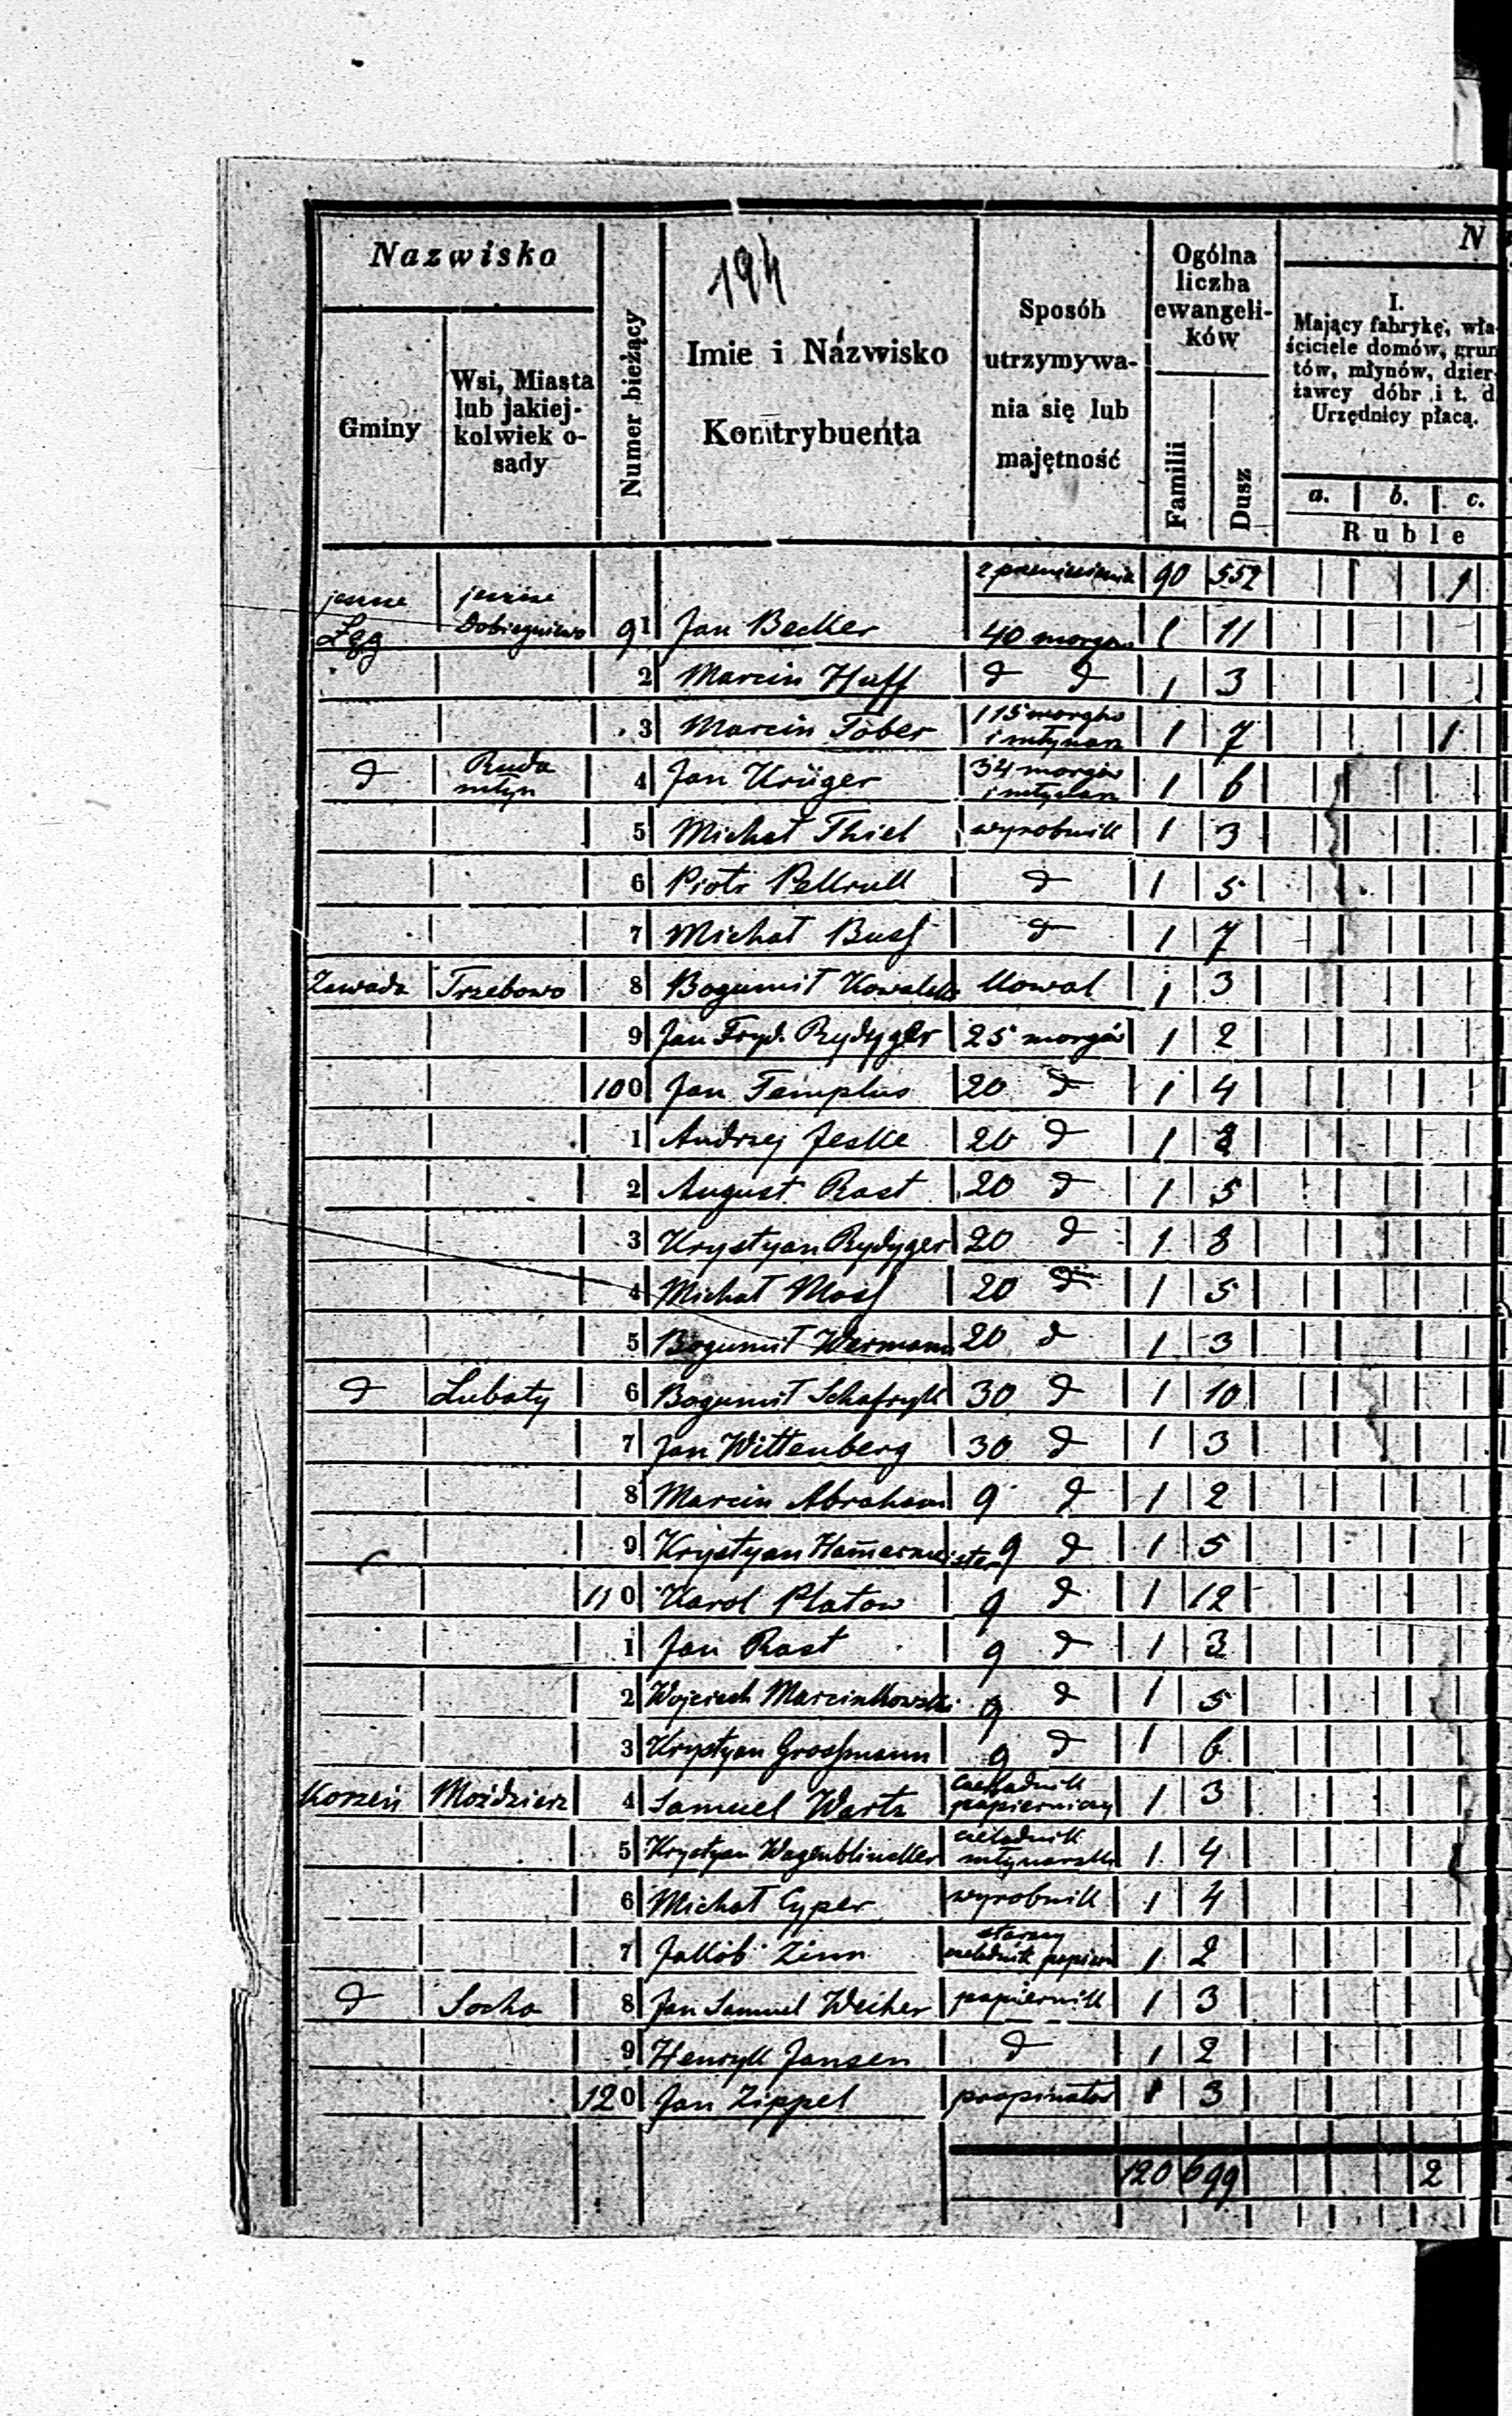 Nazwisko
Gminy
Wsi, Miasta
lub jakiej-
kolwiek o-
sady
Numer bieżący
194
Imie i Nazwisko
Kontrybuenta
Sposób
utrzymywa-
nia się lub
majętność
Ogólna
liczba
ewangeli-
ków
Familii
Dusz
N
I.
Mający fabrykę, wła-
ściciele domów, grun
tów, młynów, dzier-
żawcy dóbr i t. d.
Urzędnicy płacą.
a. b. c.
Ruble
z przeniesienia 90 552 1
jeszcze jeszcze
Łęg Dobiegniewo 91 Jan Becker 40 morgów 1 11
2 Marcin Huff d d 1 3
3 Marcin Tober 115 morgów i młynarz 1 7 1
d Ruda młyn 4 Jan Krüger 34 morgów i młynarz 1 6
5 Michał Thiel wyrobnik 1 3
6 Piotr Pekrull d 1 5
7 Michał Buss d 1 7
Zawada Trzebowo 8 Bogumił Kowalski kowal 1 3
9 Jan Fryd. Rydyger 25 morgów 1 2
100 Jan Templus 20 d 1 4
1 Andrzej Jeske 20 d 1
2 August Rast 20 d 1 5
3 Krystyan Rydyger 20 d 1 8
4 Michał Mass 20 d 1 5
5 Bogumił Wermann 20 d 1 3
d Lubaty 6 Bogumił Schafryk 30 d 1 10
7 Jan Wittenberg 30 d 1 3
8 Marcin Abraham 9 d 1 2
9 Krystyan Ham̄ermeister 9 d 1 5
110 Karol Platow 9 d 1 12
1 Jan Rast 9 d 1 3
2 Wojciech Marcinkowski 9 d 1 5
3 Krystyan Grossmann 9 d 1 6
Korzeń Moździerz 4 Samuel Wartz czeladnik papierniczy 1 3
5 Krystyan Wagenblinkler czeladnik młynarski 1 4
6 Michał Cyper wyrobnik 1 4
7 Jakób Zinn starszy czeladnik papiern 1 2
d Socha 8 Jan Samuel Weiher papiernik 1 3
9 Henryk Jansen d 1 2
120 Jan Zippel propinator 1 3
120 699 2